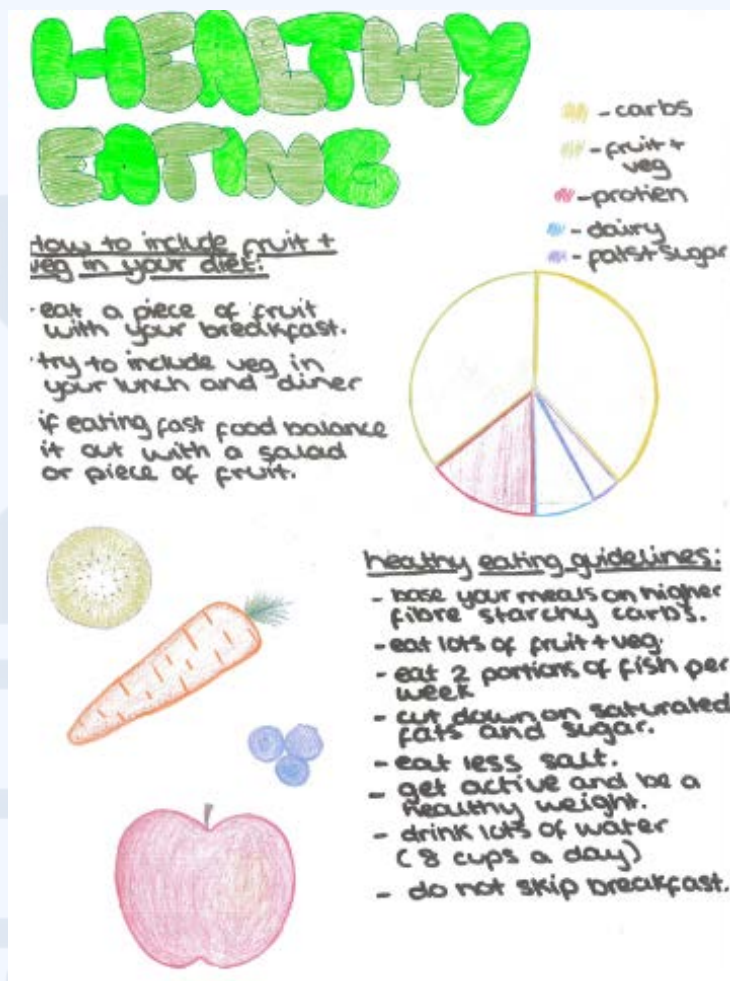 HEALTHY
EATING
- carbs
- fruit +
veg
- protien
- dairy
- fats+sugar
How to include fruit +
veg in your diet:
· eat a piece of fruit
with your breakfast.
· try to include veg in
your lunch and diner
if eating fast food balance
it out with a salad
or piece of fruit.
healthy eating guidelines:
- base your meals on higher
fibre starchy carbs.
- eat lots of fruit + veg.
- eat 2 portions of fish per
week
- cut down on saturated
fats and sugar.
- eat less salt.
- get active and be a
healthy weight.
- drink lots of water
( 8 cups a day)
- do not skip breakfast.